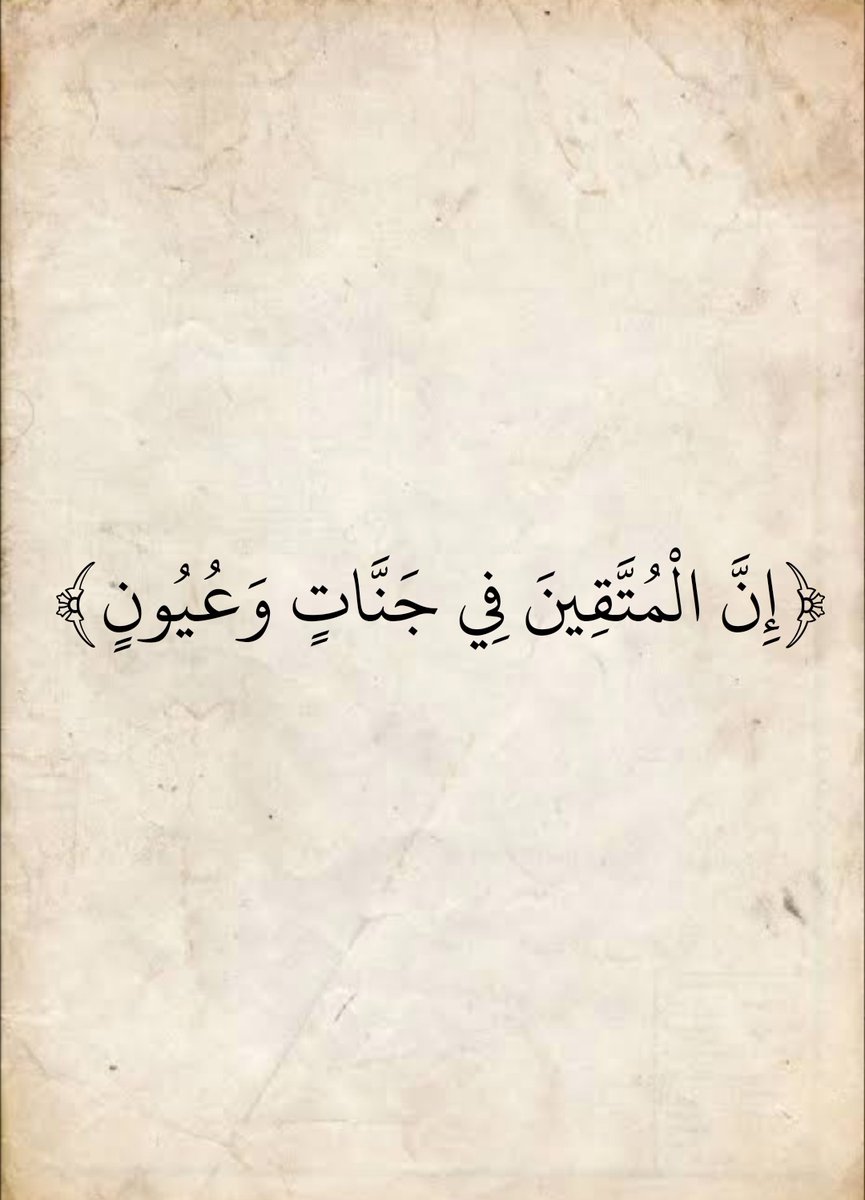 ﴿إِنَّ الْمُتَّقِينَ فِي جَنَّاتٍ وَعُيُونٍ﴾